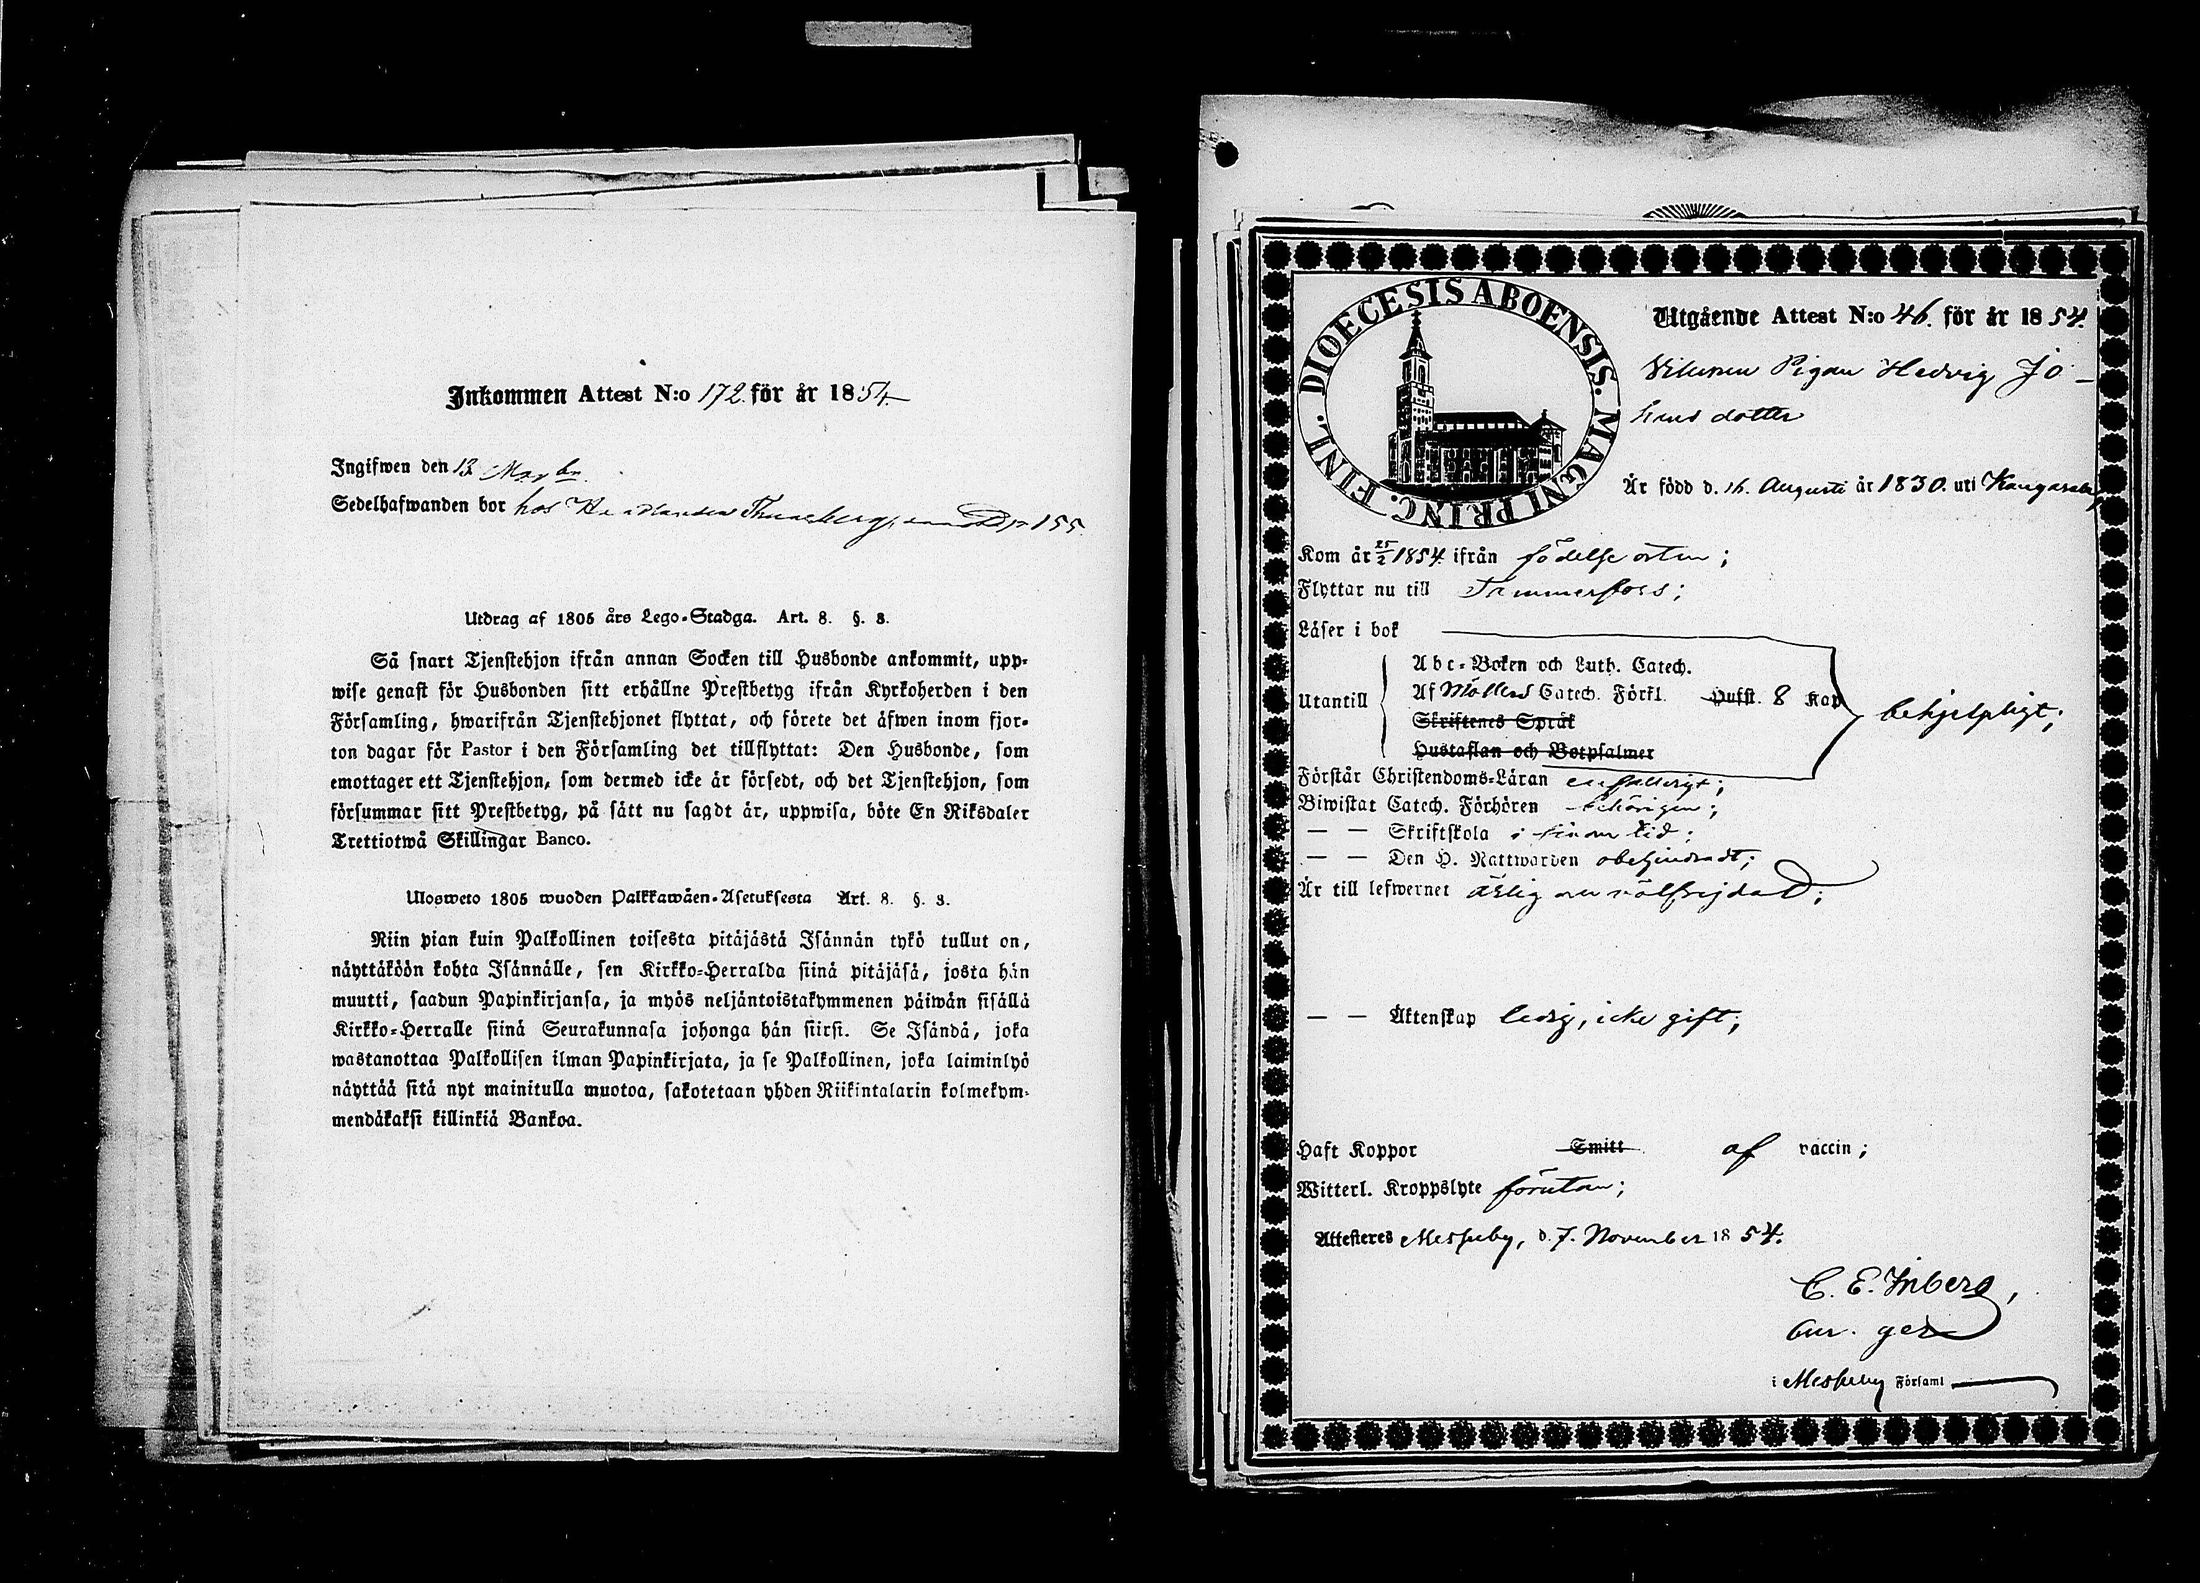 Inkommen Attest N:o 172. för år 1854.
Ingifwen den 13 Novbr.
Sedelhafwanden bor hos Handlanden Thuneberg, 155.
Utdrag af 1805 års Lego-Stadga. Art. 8. §. 3.
Så snart Tjenstehjon ifrån annan Socken till Husbonde ankommit, upp-
wise genast för Husbonden sitt erhållne Prestbetyg ifrån Kyrkoherden i den
Församling, hwarifrån Tjenstehjonet flyttat, och förete det äfwen inom fjor-
ton dagar för Pastor i den Församling det tillflyttat: Den Husbonde, som
emottager ett Tjenstehjon, som dermed icke är försedt, och det Tjenstehjon, som
försummar sitt Prestbetyg, på sätt nu sagdt är, uppwisa, böte En Riksdaler
Trettiotwå Skillingar Banco.
Ulosweto 1805 wuoden Palkkawäen-Asetuksesta Art. 8. §. 3.
Niin pian kuin Palkollinen toisesta pitäjästä Isännän tykö tullut on,
näyttäköön kohta Isännälle, sen Kirkko-Herralda siinä pitäjäsä, josta hän
muutti, saadun Papinkirjansa, ja myös neljäntoistakymmenen päiwän sisällä
Kirkko-Herralle siinä Seurakunnasa johonga hän siirsi. Se Isändä, joka
wastanottaa Palkollisen ilman Papinkirjata, ja se Palkollinen, joka laiminlyö
näyttää sitä nyt mainitulla muotoa, sakotetaan yhden Riikintalarin kolmekym-
mendäkaksi killinkiä Bankoa.
DIOECESIS ABOENSIS. MAGNI PRINC. FINL.
Utgående Attest N:o 46. för år 1854.
Pigan Hedvig Jo-
hans dotter
Är född d. 16. Augusti år 1830. uti Kangasala,
Kom år 25/2 1854. ifrån födelse orten;
Flyttar nu till Tammerfors;
Läser i bok
Abc-Boken och Luth. Catech.
Utantill Af Möllers Catech. Förkl. Hufst. 8 Kap behjelpligt;
Skriftenes Språk
Hustaflan och Botpsalmer
Förstår Christendoms-Läran enfalldigt;
Biwistat Catech. Förhören behörigen;
— — Skriftskola i sinom tid;
— — Den H. Nattwarden obehindradt;
Är till lefwernet ärlig och välfrejdad;
— — Äktenskap ledig, icke gift;
Haft Koppor Smitt af vaccin;
Witterl. Kroppslyte förutan;
Attesteres Messuby, d. 7. November 1854.
C. E. Inberg,
Cur. ger
i Messuby Församl